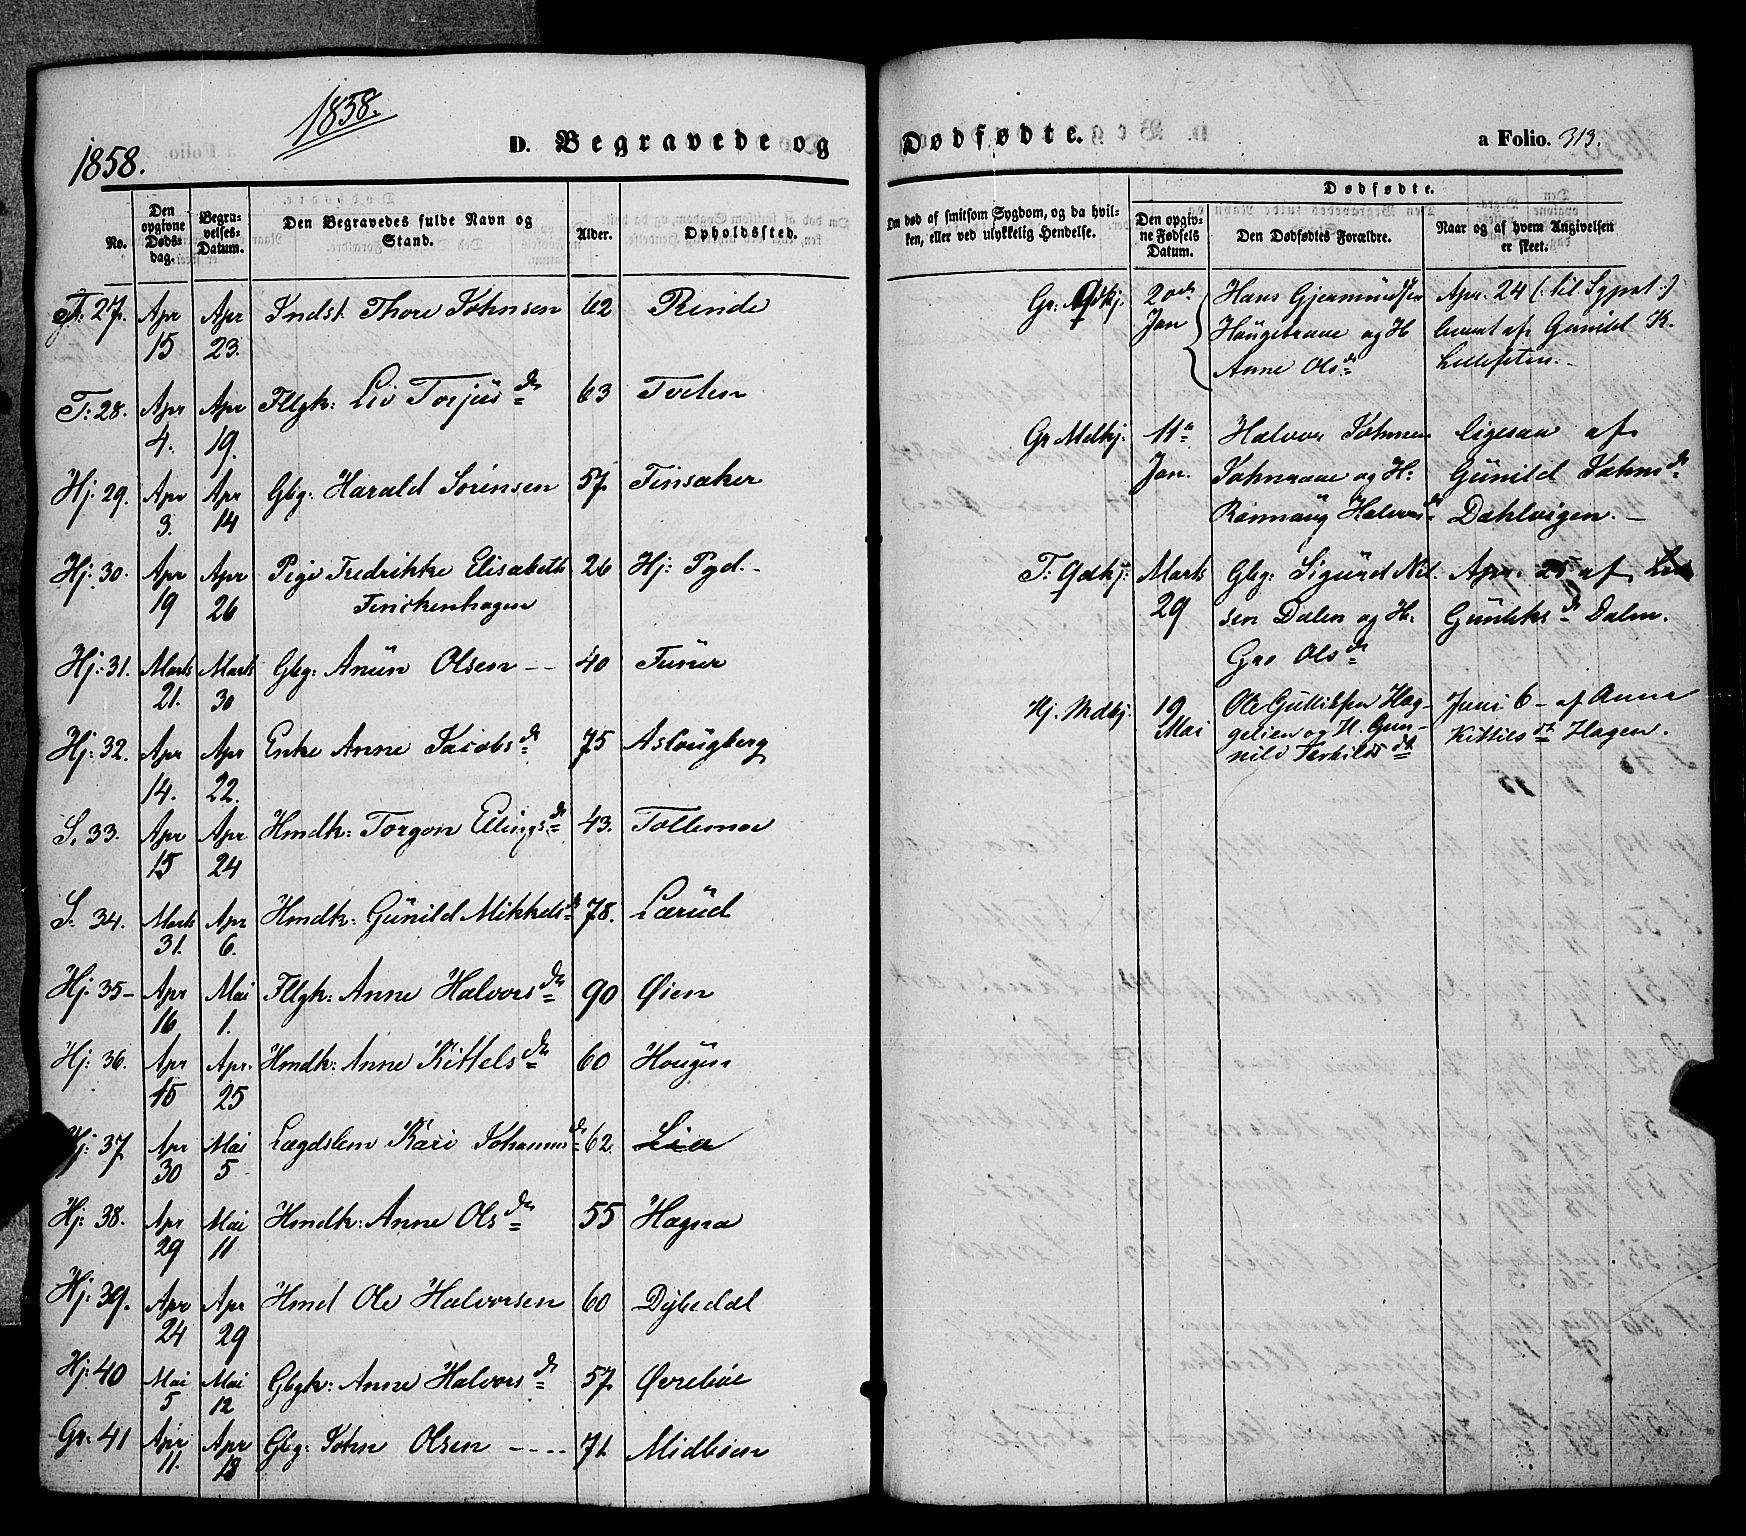 1858.
1858.
D. Begravede og
No.
Den opgivne Døds-dag.
Begra-velses-Datum.
Den Begravedes fulde Navn og Stand.
Alder.
Opholdssted.
T: 27. Apr 15 Apr 23. Indst. Thore Johnsen 62 Rinde
T: 28. Apr 4. Apr 19. Fllgk: Liv Torjüsdr 63 Tveten
Hj: 29. Apr 3. Apr 14 Gbg: Harald Sörensen 57. Tinsaker
Hj: 30. Apr 19 Apr 26 Pige Fredrikke Elisabeth 26 Hj: Pgd.
Finckenhagen
Hj: 31. Marts 21. Marts 30 Gbg: Anün Olsen 40
Hj: 32. Apr 14. Apr 22. Enke Anne Jacobsdr 75 Aslougberg
S. 33. Apr 15 Apr 24 Hmdk: Torgon Ellingsdr 43.
S. 34. Marts 31. Apr 6. Hmdk: Günild Mikkelsdr 78. Lærüd
Hj: 35 Apr 16 Mai 1. Fllgk: Anne Halvorsdr 90 Øien
Hj: 36. Apr 15 Apr. 25 Hmdk: Anne Kittelsdr 60 Hougen
Hj: 37 Apr 30 Mai 5 Lægdslem Kari Johannesdr 62. Lia
Hj: 38. Apr 29 Mai 11 Hmdk: Anne Olsdr 55 Hagna
Hj: 39. Apr 24 Apr 29 Hmd Ole Halvorsen 60 Dybedal
Hj: 40 Mai 5 Mai 12 Gbgk: Anne Halvorsdr 57. Øvrebøe
Gr: 41 Apr 11. Apr 18 Gbg: John Olsen 71. Midbøen
Dødfødte.
a Folio. 313.
Om død af smitsom Sygdom, og da hvil-ken, eller ved ulykkelig Hendelse.
Dødfødte.
Den opgiv-ne Fødsels Datum.
Den Dødfødtes Forældre.
Naar og af hvem Angivelsen er skeet.
Gr: Qdkj. 20de Jan
Hans Gjermündsen
Haugebraae og H.
Anne Olsdr
Apr. 24 (: til Sypst:)
levert af Günild K.
Gr Mdkj. 11te Jan.
Halvor Johnsen
Johnraae og H:
Rannaug Halvorsdr
ligesaa af
Günild Johnsdr
Dahlvigen.
T: Qdkj: Marts 29
Gbg: Sigürd Nil-
sen Dalen og H:
Gro Olsdr
Apr. 25 af
Günleksdr Dalen.
Hj. Mdkj. 19 Mai
Ole Gullikssen Hag-
gelien og H. Gun-
nild Terkildsdtr
Juni 6 - af Anne
Kittilsdtr Hagen.